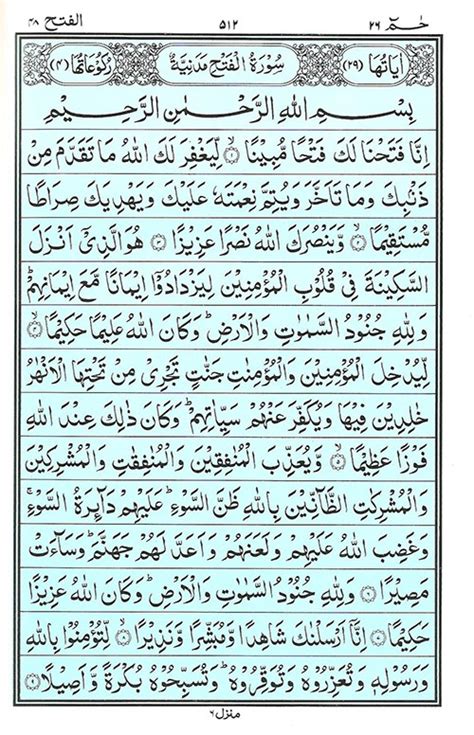 حٰمٓ ٢٦ ٥١٢ الفتح ٤٨
اٰيَاتُهَا (٢٩) سُوْرَةُ الْفَتْحِ مَدَنِيَّةٌ رُكُوْعَاتُهَا (٤)
بِسْمِ اللهِ الرَّحْمٰنِ الرَّحِيْمِ
اِنَّا فَتَحْنَا لَكَ فَتْحًا مُّبِيْنًا ۙ‏﴿١﴾ لِّيَغْفِرَ لَكَ اللهُ مَا تَقَدَّمَ مِنْ
ذَنْۢبِكَ وَمَا تَاَخَّرَ وَيُتِمَّ نِعْمَتَهٗ عَلَيْكَ وَيَهْدِيَكَ صِرَاطًا
مُّسْتَقِيْمًا ۙ﴿٢﴾ وَّيَنْصُرَكَ اللهُ نَصْرًا عَزِيْزًا ﴿٣﴾ هُوَ الَّذِيْۤ اَنْزَلَ
السَّكِيْنَةَ فِيْ قُلُوْبِ الْمُؤْمِنِيْنَ لِيَزْدَادُوْۤا اِيْمَانًا مَّعَ اِيْمَانِهِمْ ؕ
وَلِلّٰهِ جُنُوْدُ السَّمٰوٰتِ وَالْاَرْضِ ؕ وَكَانَ اللهُ عَلِيْمًا حَكِيْمًا ۙ﴿٤﴾
لِّيُدْخِلَ الْمُؤْمِنِيْنَ وَالْمُؤْمِنٰتِ جَنّٰتٍ تَجْرِيْ مِنْ تَحْتِهَا الْاَنْهٰرُ
خٰلِدِيْنَ فِيْهَا وَيُكَفِّرَ عَنْهُمْ سَيِّاٰتِهِمْ ؕ وَكَانَ ذٰلِكَ عِنْدَ اللهِ
فَوْزًا عَظِيْمًا ۙ﴿٥﴾ وَّيُعَذِّبَ الْمُنٰفِقِيْنَ وَالْمُنٰفِقٰتِ وَالْمُشْرِكِيْنَ
وَالْمُشْرِكٰتِ الظَّآنِّيْنَ بِاللهِ ظَنَّ السَّوْءِ ؕ عَلَيْهِمْ دَآئِرَةُ السَّوْءِ ۚ
وَغَضِبَ اللهُ عَلَيْهِمْ وَلَعَنَهُمْ وَاَعَدَّ لَهُمْ جَهَنَّمَ ؕ وَسَآءَتْ
مَصِيْرًا ﴿٦﴾ وَلِلّٰهِ جُنُوْدُ السَّمٰوٰتِ وَالْاَرْضِ ؕ وَكَانَ اللهُ عَزِيْزًا
حَكِيْمًا ﴿٧﴾ اِنَّاۤ اَرْسَلْنٰكَ شَاهِدًا وَّمُبَشِّرًا وَّنَذِيْرًا ۙ﴿٨﴾ لِّتُؤْمِنُوْا بِاللهِ
وَرَسُوْلِهٖ وَتُعَزِّرُوْهُ وَتُوَقِّرُوْهُ ؕ وَتُسَبِّحُوْهُ بُكْرَةً وَّاَصِيْلًا ﴿٩﴾
منزل ٦